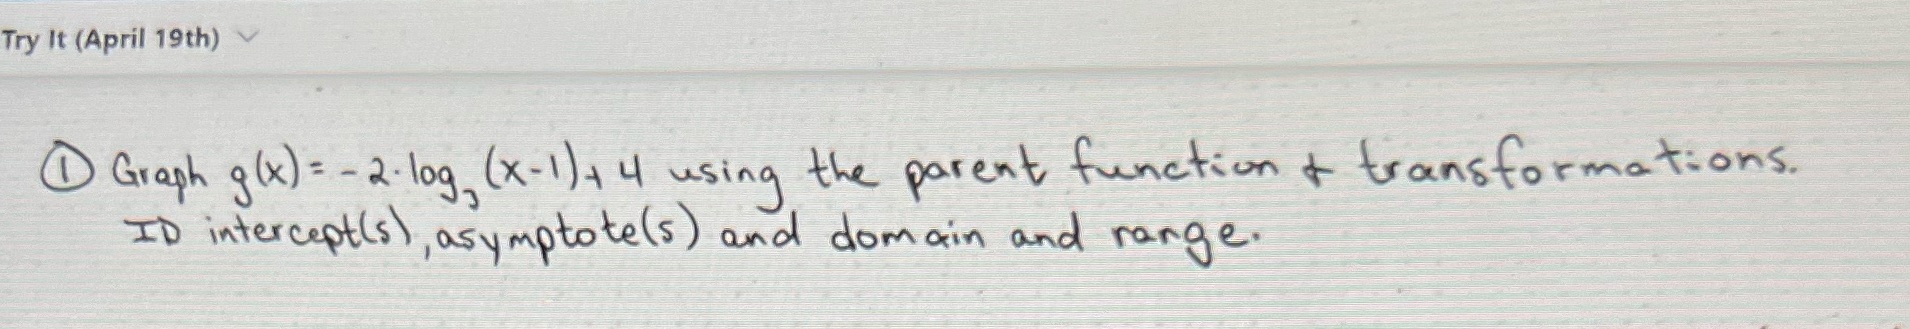 Try It (April 19th)
① Graph g(x) = -2·log₃(x-1)+4 using the parent function + transformations.
ID intercept(s), asymptote(s) and domain and range.